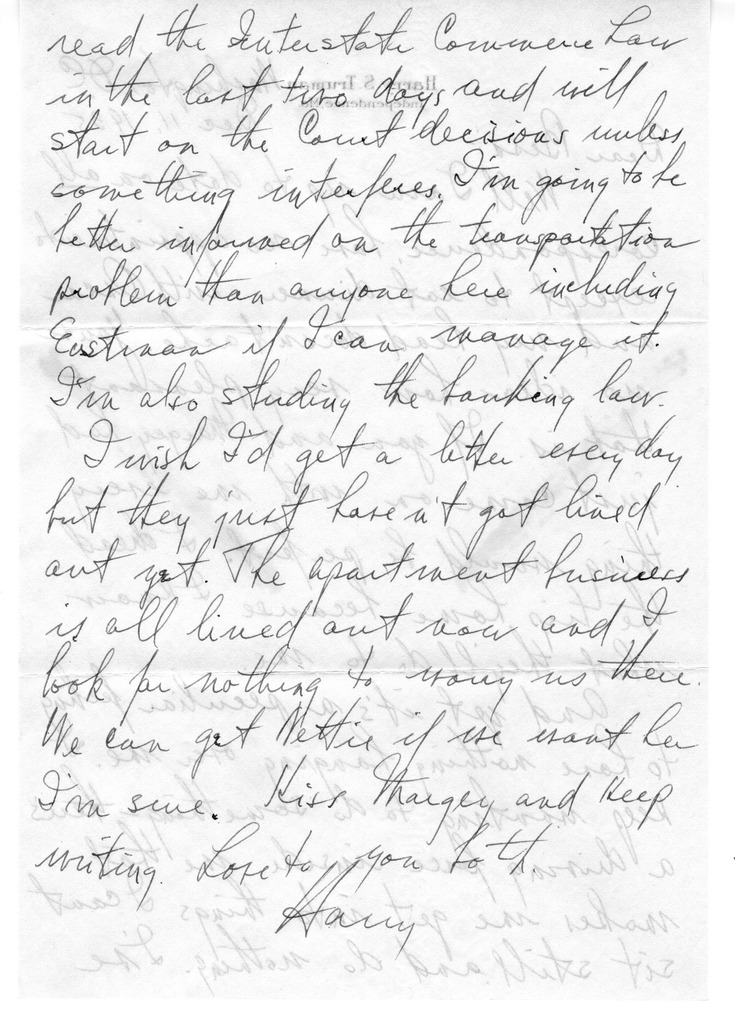 read the Interstate Commerce Law
in the last two days and will
start on the Court decisions unless
something interferes. I'm going to be
better informed on the transportation
problem than anyone here including
Eastman if I can manage it.
I'm also studing the banking law.
I wish I'd get a letter every day
but they just haven't got lined
out yet. The apartment business
is all lined out now and I
look for nothing to worry us there.
We can get Nettie if we want her
I'm sure. Kiss Margey and keep
writing. Love to you both.
Harry